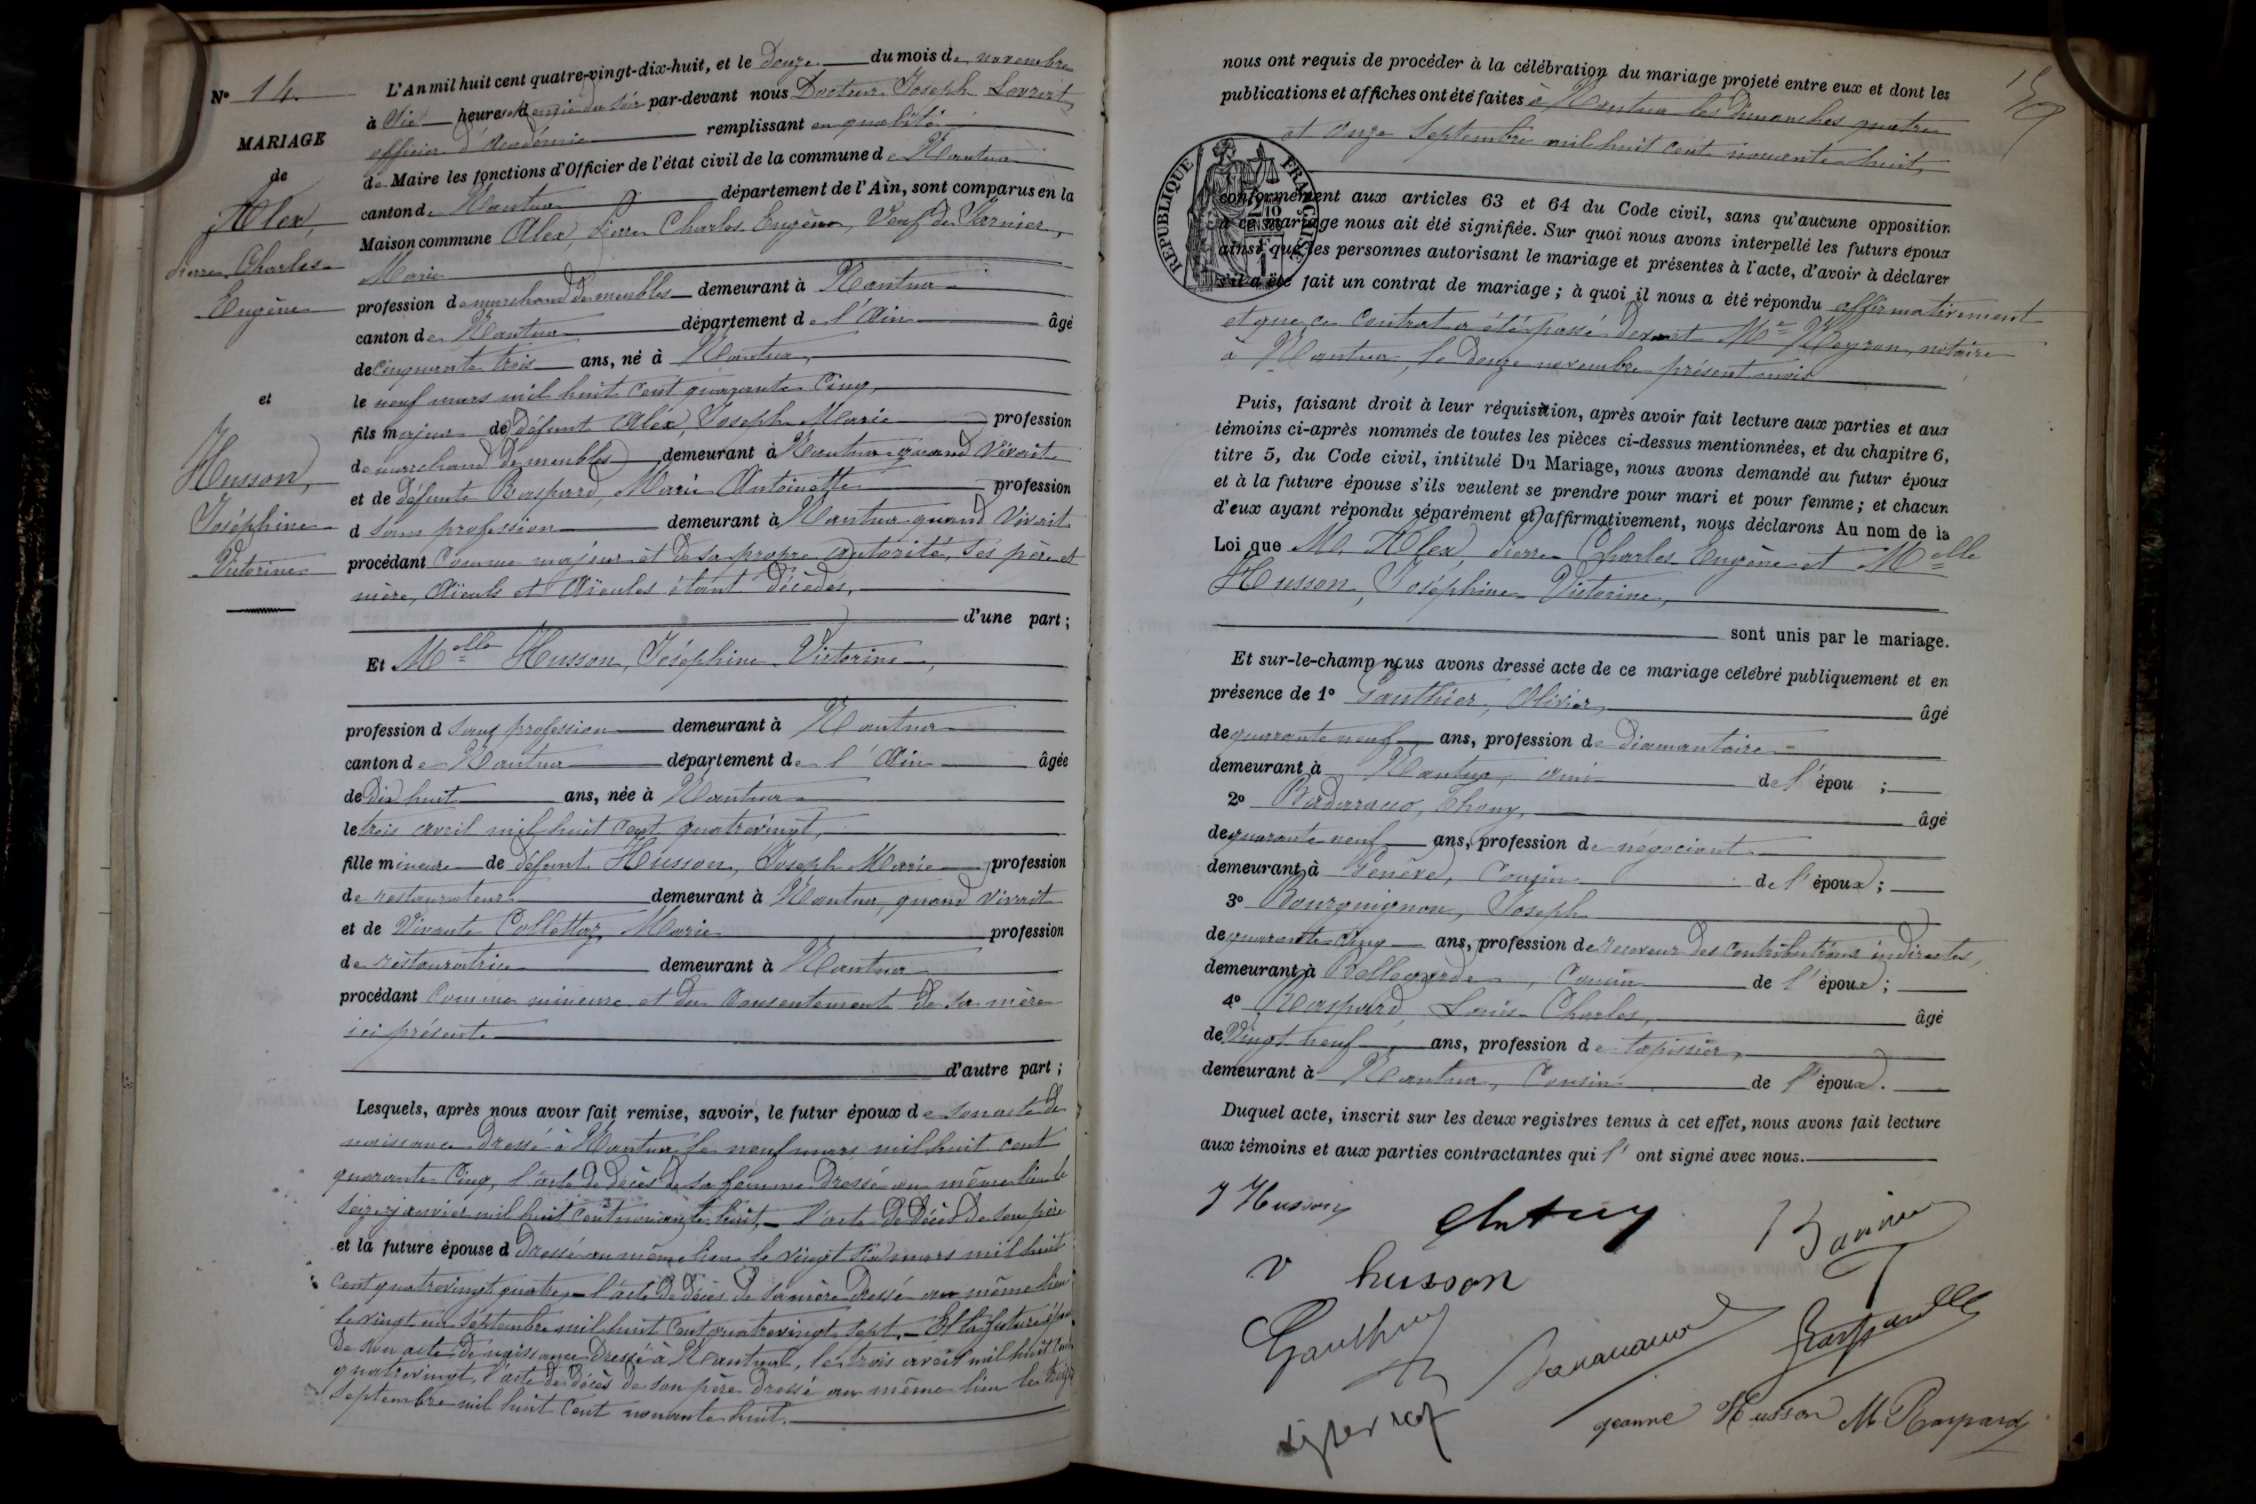 N° 14.
MARIAGE
de
Alex,
Pierre Charles
Eugène
et
Husson,
Joséphine
Victorine
L'An mil huit cent quatre-vingt-dix-huit, et le douze du mois de novembre
à six heures & demie du soir par-devant nous Docteur Joseph
officier d'Académie remplissant en qualité
de Maire les fonctions d'Officier de l'état civil de la commune de Nantua
canton de Nantua département de l'Ain, sont comparus en la
Maison commune Alex, Pierre Charles Eugène, Veuf de Garnier,
Marie
profession de marchand de meubles demeurant à Nantua
canton de Nantua département de l'Ain âgé
de cinquante trois ans, né à Nantua,
le neuf mars mil huit cent quarante cinq,
fils majeur de défunt Alex, Joseph Marie profession
de marchand de meubles demeurant à Nantua quand vivait
et de défunte Raspard, Marie Antoinette profession
d sans profession demeurant à Nantua quand vivait
procédant comme majeur et de sa propre autorité, ses père et
mère, Aïeuls et Aïeules étant décédés,
d'une part;
Et Melle Husson, Joséphine Victorine,
profession d sans profession demeurant à Nantua
canton de Nantua département de l'Ain âgée
de dix huit ans, née à Nantua
le trois avril mil huit cent quatrevingt,
fille mineure de défunt Husson, Joseph Marie profession
de restaurateur demeurant à Nantua, quand vivait
et de vivante Collettaz, Marie profession
de restauratrice demeurant à Nantua
procédant comme mineure et du consentement de sa mère
ici présente
d'autre part;
Lesquels, après nous avoir fait remise, savoir, le futur époux de son acte de
naissance dressé à Nantua le neuf mars mil huit cent
quarante cinq, l'acte de décès de sa femme dressé au même lieu le
seize janvier mil huit cent nonante huit, l'acte de décès de son père
et la future épouse d dressé au même lieu le vingt six mars mil huit
cent quatrevingt quatre, l'acte de décès de sa mère dressé au même lieu
le vingt un septembre mil huit cent quatrevingt sept. Et la future épouse
de son acte de naissance dressé à Nantua, le trois avril mil huit cent
quatrevingt, l'acte de décès de son père dressé au même lieu le
septembre mil huit cent nonante huit.
nous ont requis de procéder à la célébration du mariage projeté entre eux et dont les
publications et affiches ont été faites à Nantua les dimanches quatre
et onze Septembre mil huit cent nonante huit,
RÉPUBLIQUE FRANÇAISE
conformément aux articles 63 et 64 du Code civil, sans qu'aucune opposition
à ce mariage nous ait été signifiée. Sur quoi nous avons interpellé les futurs époux
ainsi que les personnes autorisant le mariage et présentes à l'acte, d'avoir à déclarer
s'il a été fait un contrat de mariage; à quoi il nous a été répondu affirmativement
et que ce contrat a été passé devant Me notaire
à Nantua, le douze novembre présent mois
Puis, faisant droit à leur réquisition, après avoir fait lecture aux parties et aux
témoins ci-après nommés de toutes les pièces ci-dessus mentionnées, et du chapitre 6,
titre 5, du Code civil, intitulé Du Mariage, nous avons demandé au futur époux
et à la future épouse s'ils veulent se prendre pour mari et pour femme; et chacun
d'eux ayant répondu séparément et affirmativement, nous déclarons Au nom de la
Loi que M. Alex, Pierre Charles Eugène et Melle
Husson, Joséphine Victorine,
sont unis par le mariage.
Et sur-le-champ nous avons dressé acte de ce mariage célébré publiquement et en
présence de 1° Gauthier, Olivier, âgé
de quarante neuf ans, profession de diamantaire
demeurant à Nantua, ami de l'épou ;
2° Badaracco, Thomy, âgé
de quarante neuf ans, profession de négociant
demeurant à Genève, Cousin de l'époux;
3° Bourguignon, Joseph
de quarante cinq ans, profession de receveur des contributions indirectes,
demeurant à Bellegarde, Cousin de l'époux;
4° Raspard, Louis Charles, âgé
de vingt neuf ans, profession de tapissier,
demeurant à Nantua, Cousin de l'époux.
Duquel acte, inscrit sur les deux registres tenus à cet effet, nous avons fait lecture
aux témoins et aux parties contractantes qui l' ont signé avec nous.
J Husson
V husson
Gauthier
Jeanne Husson M Raspard